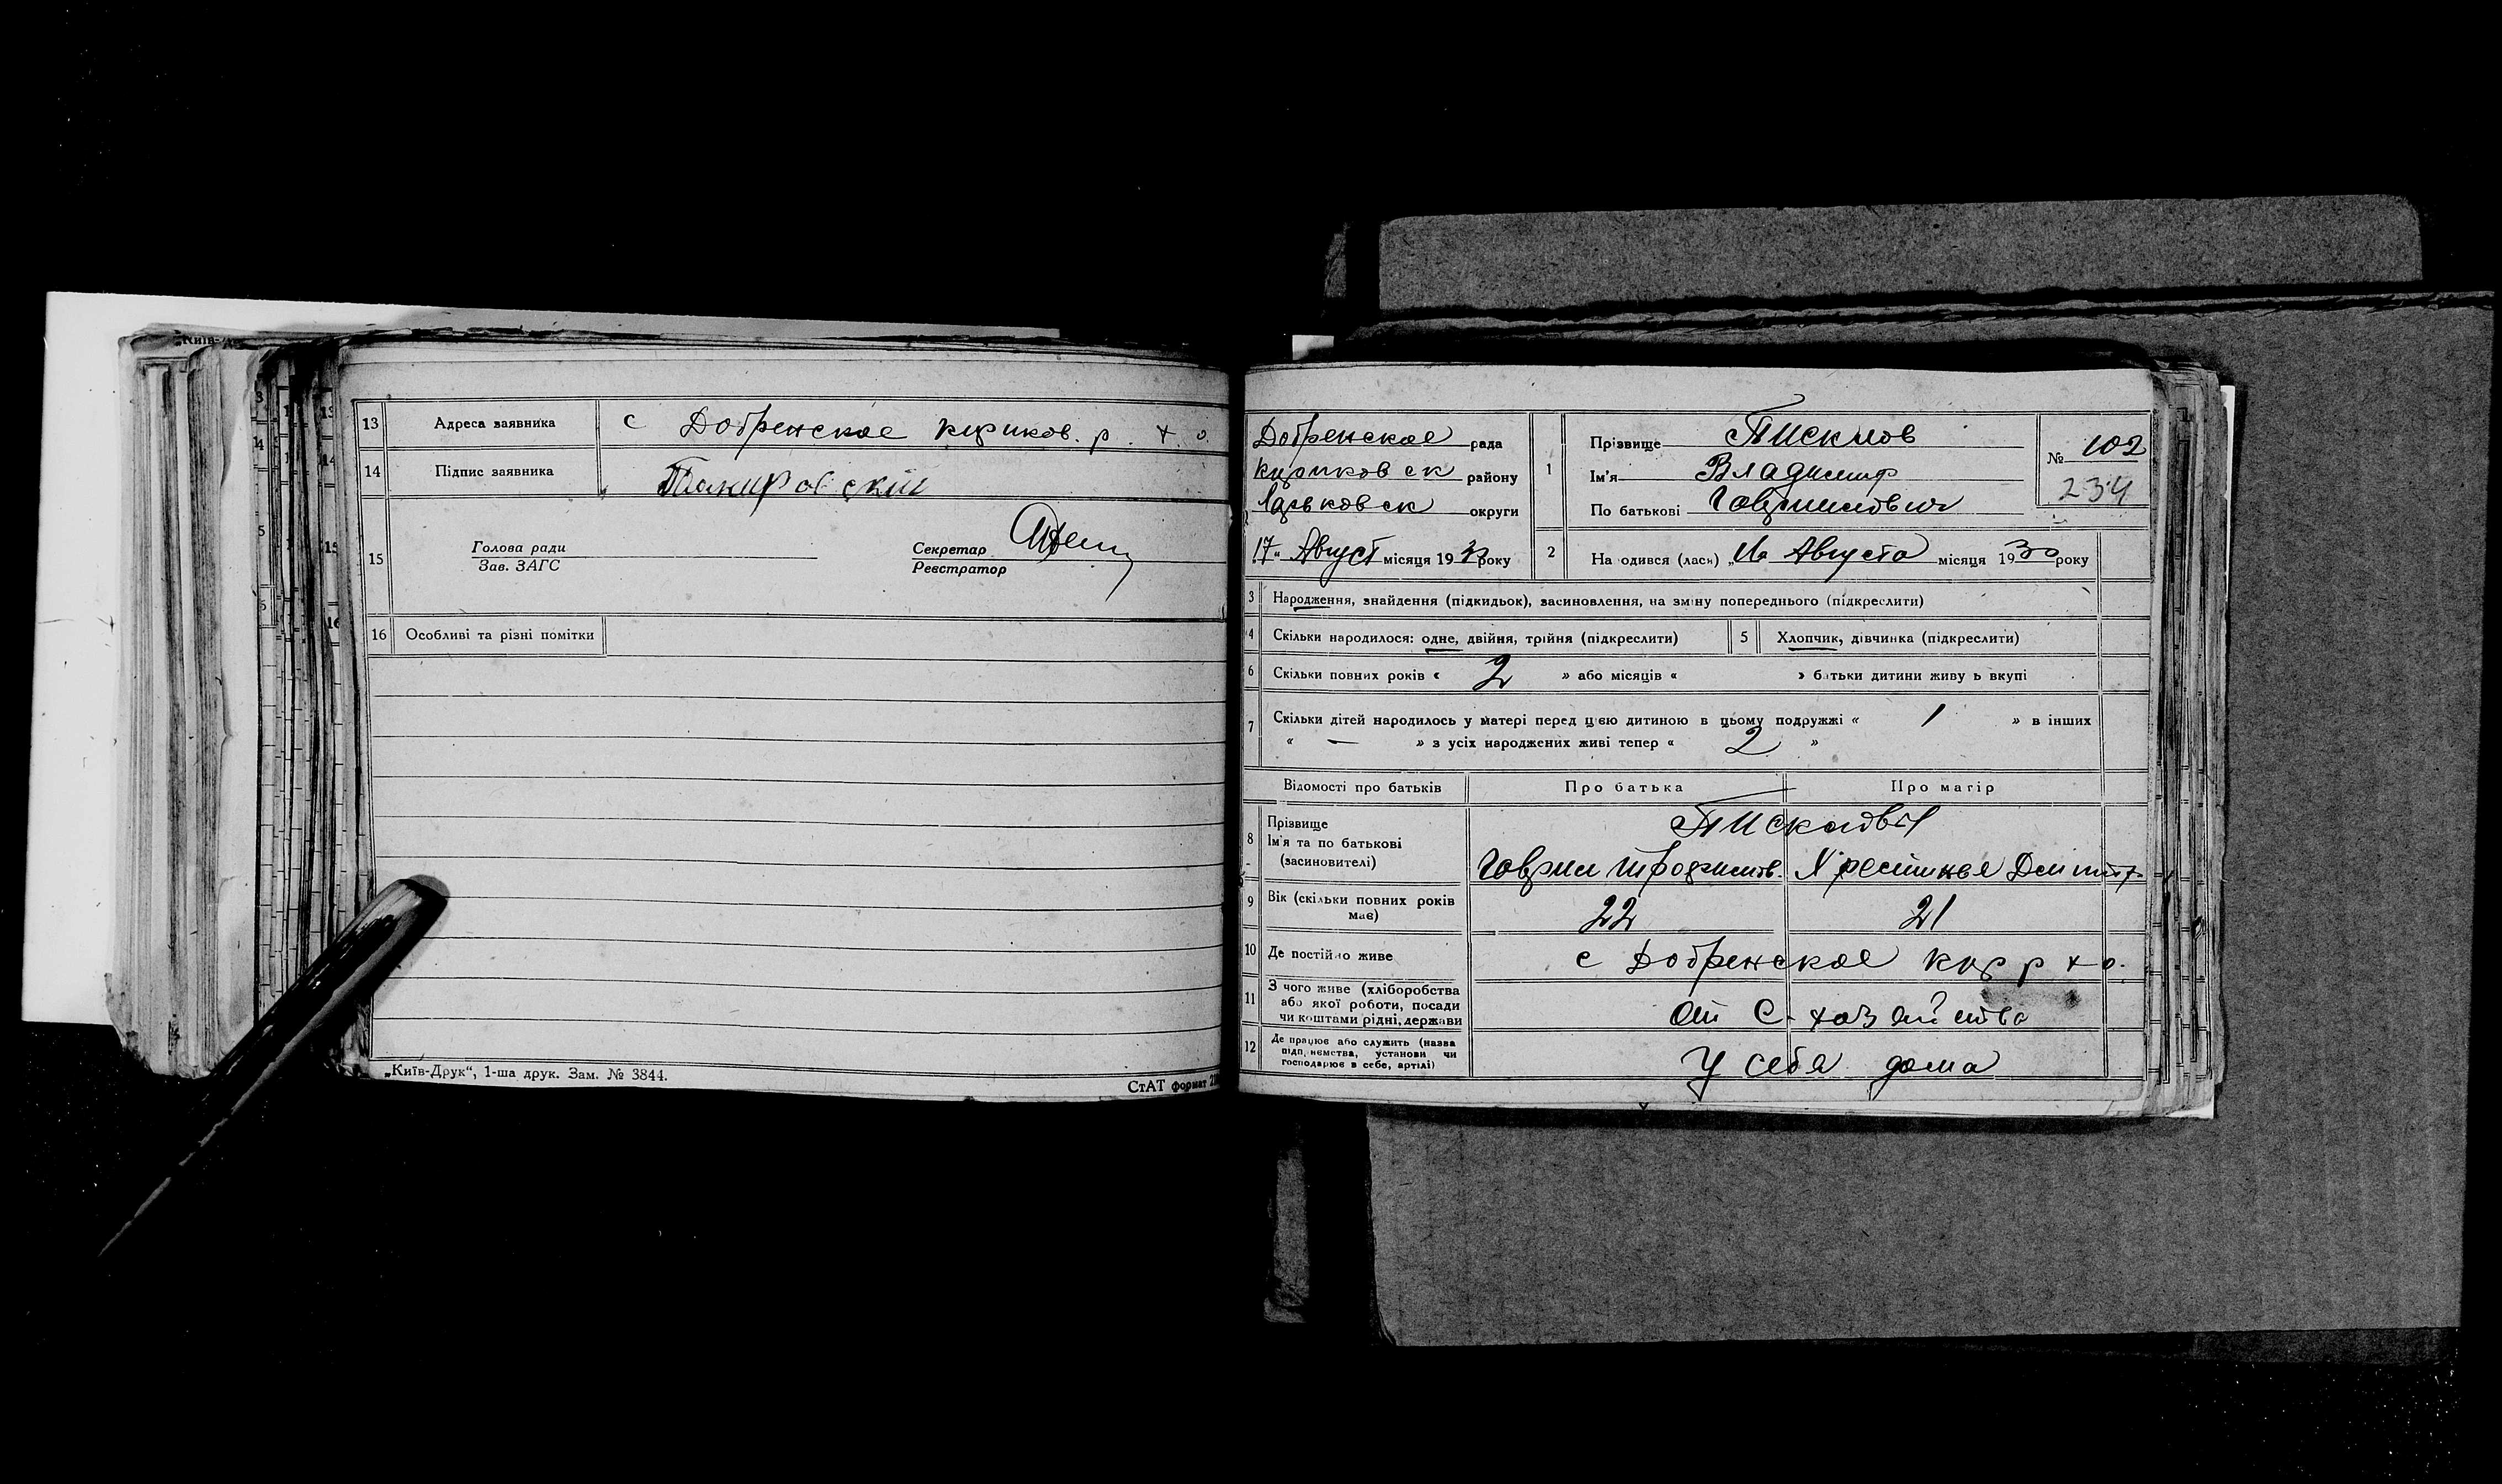 13 Адреса заявника с Добренское кириков. р. х. о.
14 Підпис заявника
15 Голова ради Зав. ЗАГС Секретар Реєстратор
16 Особливі та різні помітки
„Київ-Друк“, 1-ша друк. Зам. № 3844.
СтАТ формат
Добренское рада
кириковск району
Харьковск округи
17 Август місяця 1930 року
1 Прізвище Писклов
Ім'я Владимир
По батькові Гаврилович
№ 102
234
2 На одився (лась) „16 Августа місяця 1930 року
3 Народження, знайдення (підкидьок), засиновлення, на зміну попереднього (підкреслити)
4 Скільки народилося: одне, двійня, трійня (підкреслити) 5 Хлопчик, дівчинка (підкреслити)
6 Скільки повних років « 2 » або місяців « » батьки дитини живу ь вкупі
7 Скільки дітей народилось у матері перед цією дитиною в цьому подружжі « 1 » в інших
« — » з усіх народжених живі тепер « 2 »
Відомості про батьків Про батька Про матір
8 Прізвище
Ім'я та по батькові
(засиновителі)
Гаврил Христинья Дмитр
9 Вік (скільки повних років має) 22 21
10 Де постійно живе с Добренское кир р х о.
11 З чого живе (хліборобства
або якої роботи, посади
чи коштами рідні, держави
от С. хозяйства
12 Де працює або служить (назва
підприємства, установи чи
господарює в себе, артілі)
У себя дома